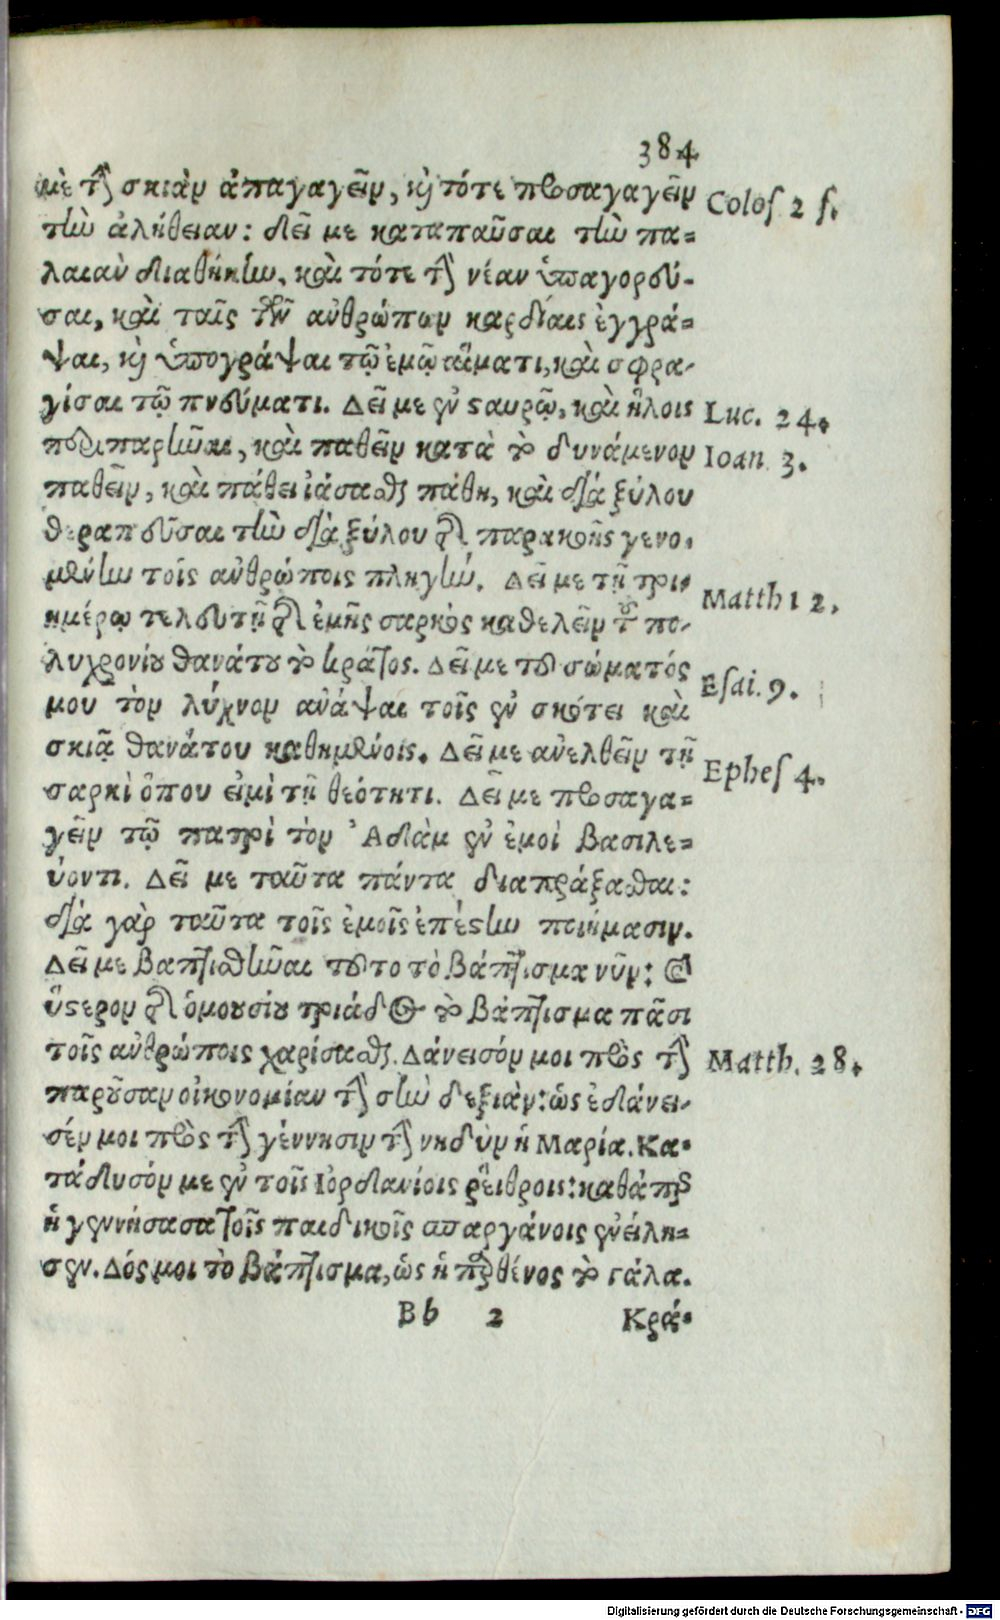 384
μὲ τὴν σκιὰν ἀπαγαγεῖν, καὶ τότε προσαγαγεῖν
Colos. 2 s.
τὴν ἀλήθειαν: δεῖ με καταπαῦσαι τὴν πα-
λαιὰν διαθήκην, καὶ τότε τὴν νέαν ὑπαγορεύ-
σαι, καὶ ταῖς τῶν ἀνθρώπων καρδίαις ἐγγρά-
ψαι, καὶ ὑπογράψαι τῷ ἐμῷ αἵματι, καὶ σφρα-
γίσαι τῷ πνεύματι. Δεῖ με ἐν σταυρῷ, καὶ ἥλοις
Luc. 24.
περιπαρῆναι, καὶ παθεῖν κατὰ τὸ δυνάμενον
Ioan 3.
παθεῖν, καὶ πάθει ἰάσασθαι πάθη, καὶ διὰ ξύλου
θεραπεῦσαι τὴν διὰ ξύλου τῆς παρακοῆς γενο-
μένην τοῖς ἀνθρώποις πληγήν. Δεῖ με τῇ τρι-
Matth 12.
ημέρῳ τελευτῇ τῆς ἐμῆς σαρκὸς καθελεῖν τοῦ πο-
λυχρονίου θανάτου τὸ κράτος. Δεῖ με τοῦ σώματός
Esai. 9.
μου τὸν λύχνον ἀνάψαι τοῖς ἐν σκότει καὶ
σκιᾷ θανάτου καθημένοις. Δεῖ με ἀνελθεῖν τῇ
Ephes 4.
σαρκὶ ὅπου εἰμὶ τῇ θεότητι. Δεῖ με προσαγα-
γεῖν τῷ πατρὶ τὸν Ἀδὰμ ἐν ἐμοὶ βασιλε-
ύοντι. Δεῖ με ταῦτα πάντα διαπράξασθαι:
διὰ γὰρ ταῦτα τοῖς ἐμοῖς ἐπέστην ποιήμασιν.
Δεῖ με βαπτισθῆναι τοῦτο τὸ βάπτισμα νῦν: καὶ
ὕστερον τῆς ὁμουσίου τριάδος τὸ βάπτισμα πᾶσι
τοῖς ἀνθρώποις χαρίσασθαι. Δάνεισόν μοι πρὸς τὴν
Matth. 28.
παροῦσαν οἰκονομίαν τὴν σὴν δεξιάν: ὡς ἐδάνει-
σέν μοι πρὸς τὴν γέννησιν τὴν νηδὺν ἡ Μαρία. Κα-
τάδυσόν με ἐν τοῖς Ἰορδανίοις ῥείθροις: καθάπερ
ἡ γεννήσασα τοῖς παιδικοῖς σπαργάνοις ἐνείλη-
σεν. Δός μοι τὸ βάπτισμα, ὡς ἡ παρθένος τὸ γάλα.
Bb 2 Κρά-
Digitalisierung gefördert durch die Deutsche Forschungsgemeinschaft - DFG